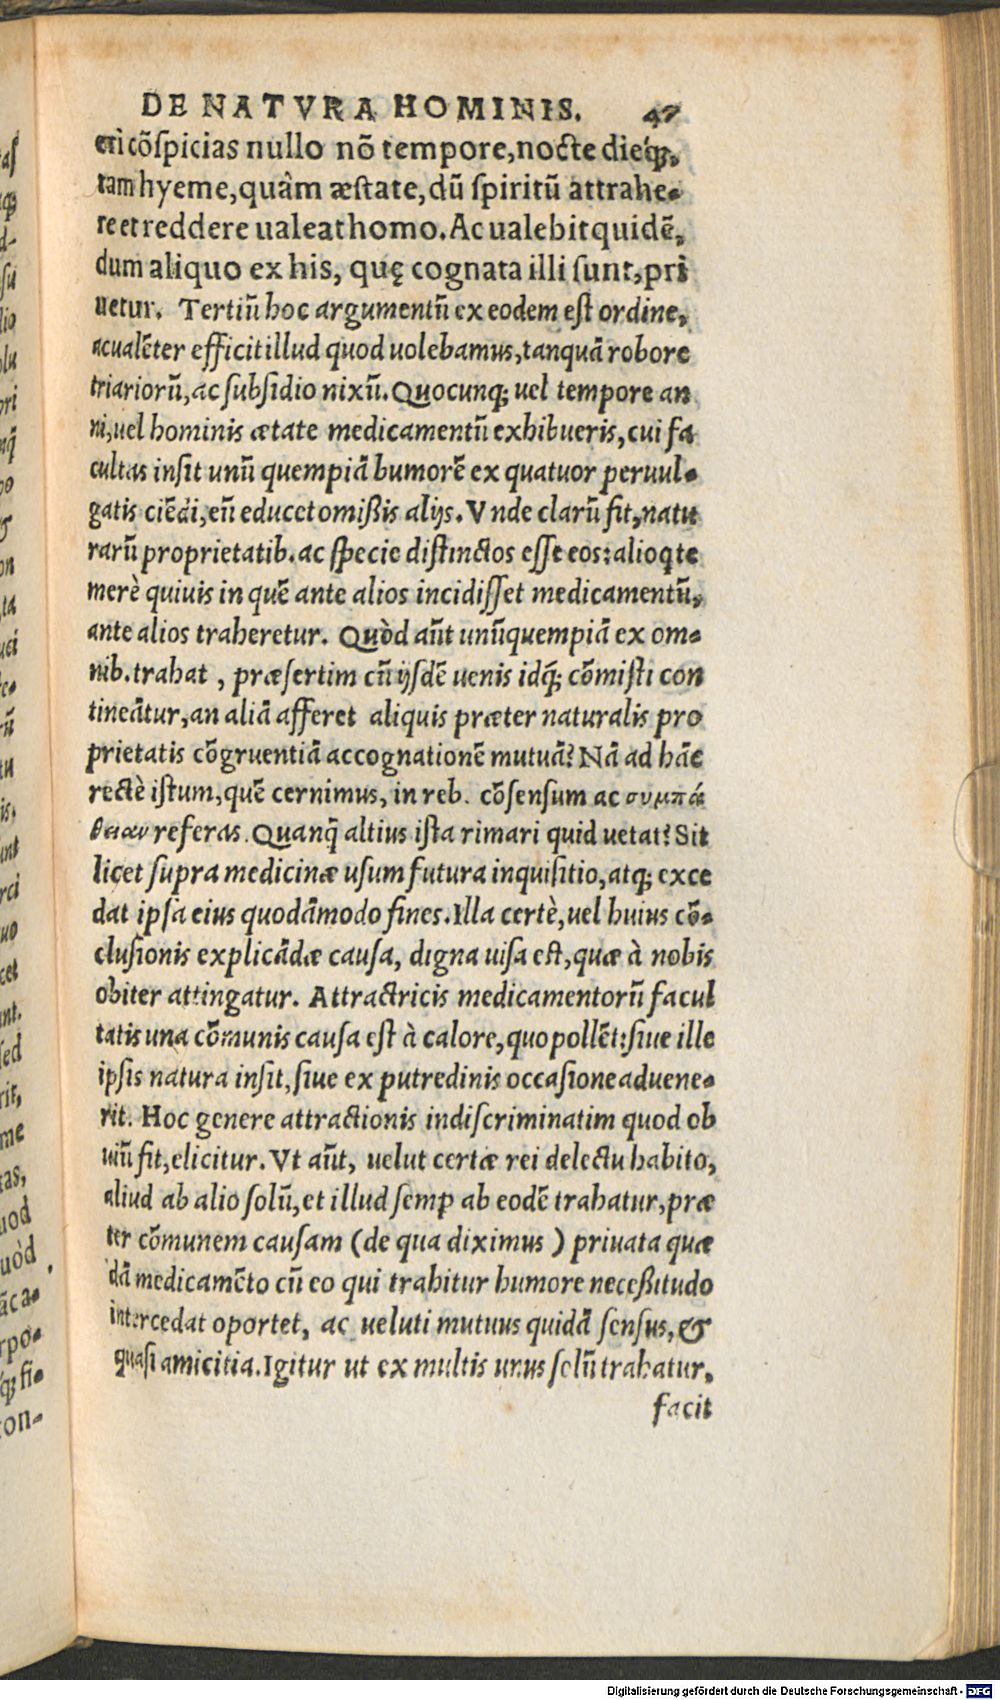 DE NATVRA HOMINIS. 47
eri cõspicias nullo nõ tempore, nocte dieq́;,
tam hyeme, quàm æstate, dũ spiritũ attrahe-
re et reddere ualeat homo. Ac ualebit quidẽ,
dum aliquo ex his, quę cognata illi sunt, pri
uetur. Tertiũ hoc argumentũ ex eodem est ordine,
ac ualẽter efficit illud quod uolebamus, tanquã robore
triariorũ, ac subsidio nixũ. Quocunq; uel tempore an
ni, uel hominis ætate medicamentũ exhibueris, cui fa
cultas insit unũ quempiã humorẽ ex quatuor peruul-
gatis ciẽdi, eũ educet omißis alijs. Vnde clarũ fit, natu
rarũ proprietatib. ac specie distinctos esse eos: alioq te
merè quiuis in quẽ ante alios incidisset medicamentũ,
ante alios traheretur. Quòd aũt unũquempiã ex om-
nib. trahat, præsertim cũ ijsdẽ uenis idq́; cõmisti con
tineãtur, an aliã afferet aliquis præter naturalis pro
prietatis cõgruentiã ac cognationẽ mutuã? Nã ad hãc
rectè istum, quẽ cernimus, in reb. cõsensum ac συμπά
θειαν referas. Quanq̃ altius ista rimari quid uetat? Sit
licet supra medicinæ usum futura inquisitio, atq; exce
dat ipsa eius quodãmodo fines. Illa certè, uel huius cõ-
clusionis explicãdæ causa, digna uisa est, quæ à nobis
obiter attingatur. Attractricis medicamentorũ facul
tatis una cõmunis causa est à calore, quo pollẽt: siue ille
ipsis natura insit, siue ex putredinis occasione aduene-
rit. Hoc genere attractionis indiscriminatim quod ob
uiũ fit, elicitur. Vt aũt, uelut certæ rei delectu habito,
aliud ab alio solũ, et illud semp ab eodẽ trahatur, præ
ter cõmunem causam (de qua diximus) priuata quæ
dã medicamẽto cũ eo qui trahitur humore neceßitudo
intercedat oportet, ac ueluti mutuus quidã sensus, &
quasi amicitia. Igitur ut ex multis unus solũ trahatur,
facit
Digitalisierung gefördert durch die Deutsche Forschungsgemeinschaft - DFG